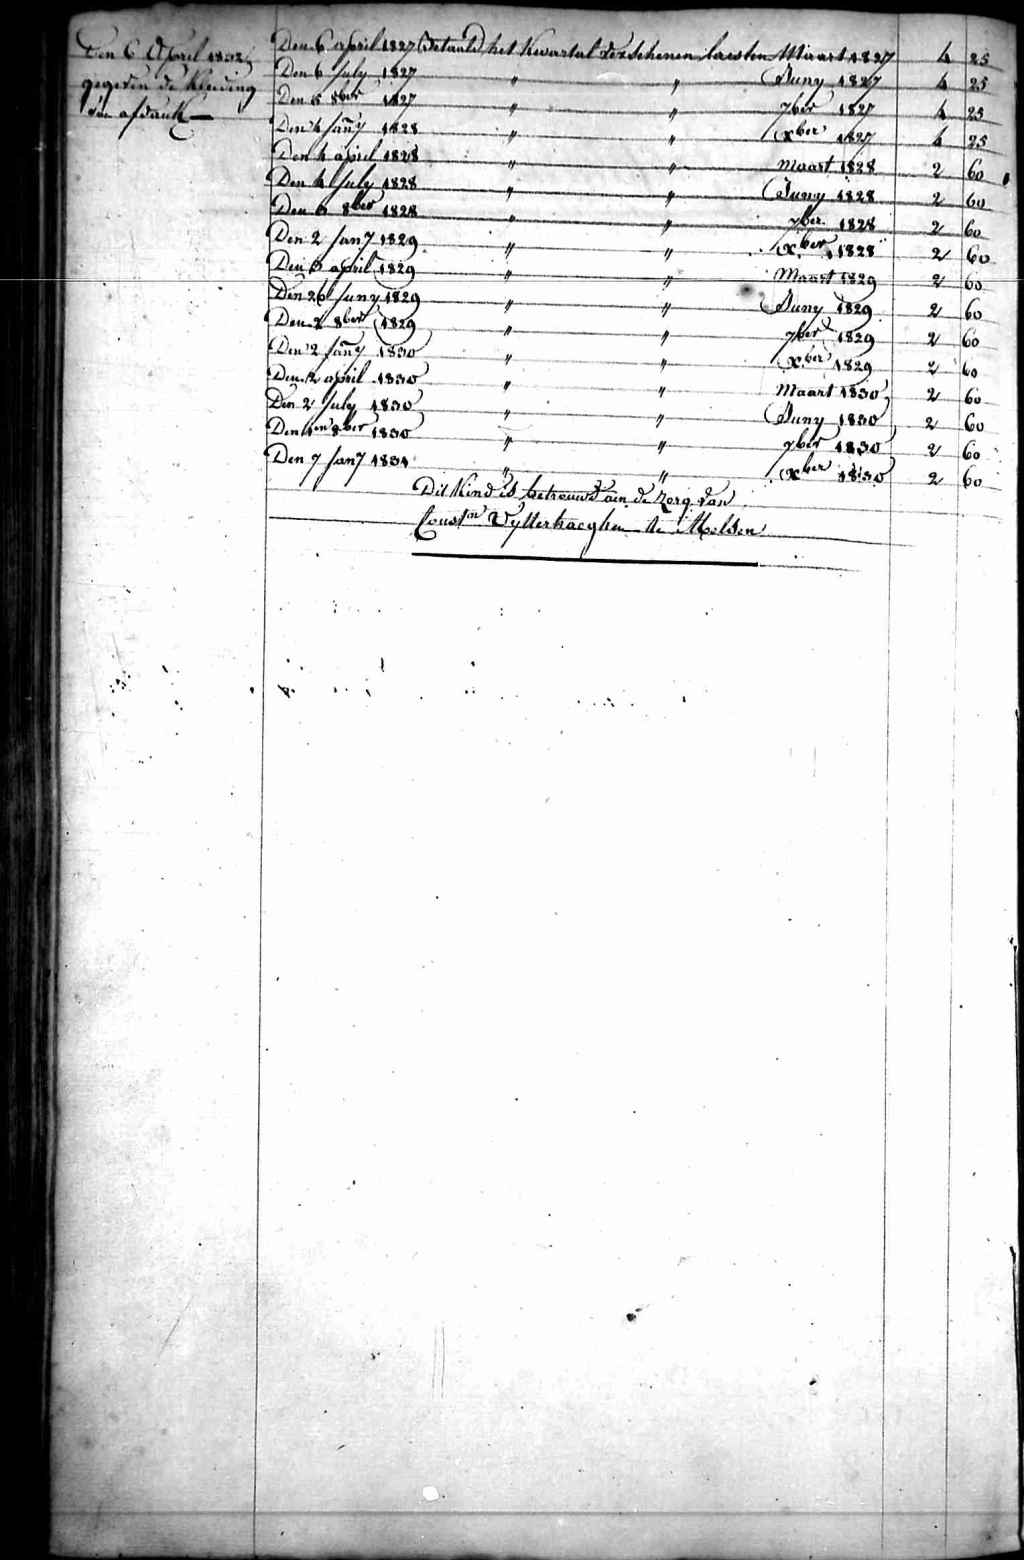 Den 6 April 1832
gegeven de kleeding
van afdank —
Den 6 april 1827 Betaald het kwartal verschenen laesten Maart 1827 4 25
Den 6 July 1827 " " Juny 1827 4 25
Den 5 8ber 1827 " " 7ber 1827 4 25
Den 4 Jany 1828 " " Xber 1827 4 25
Den 4 april 1828 " " Maart 1828 2 60
Den 4 July 1828 " " Juny 1828 2 60
Den 3 8ber 1828 " " 7ber 1828 2 60
Den 2 Jany 1829 " " Xber 1828 2 60
Den 3 april 1829 " " Maart 1829 2 60
Den 26 Juny 1829 " " Juny 1829 2 60
Den 2 8ber 1829 " " 7ber 1829 2 60
Den 2 Jany 1830 " " Xber 1829 2 60
Den 2 april 1830 " " Maart 1830 2 60
Den 2 July 1830 " " Juny 1830 2 60
Den 1en 8ber 1830 " " 7ber 1830 2 60
Den 7 Jany 1831 " " Xber 1830 2 60
Dit Kind is betrouwd aen de zorg van
Const.in Vyttertraeghen te Melsen